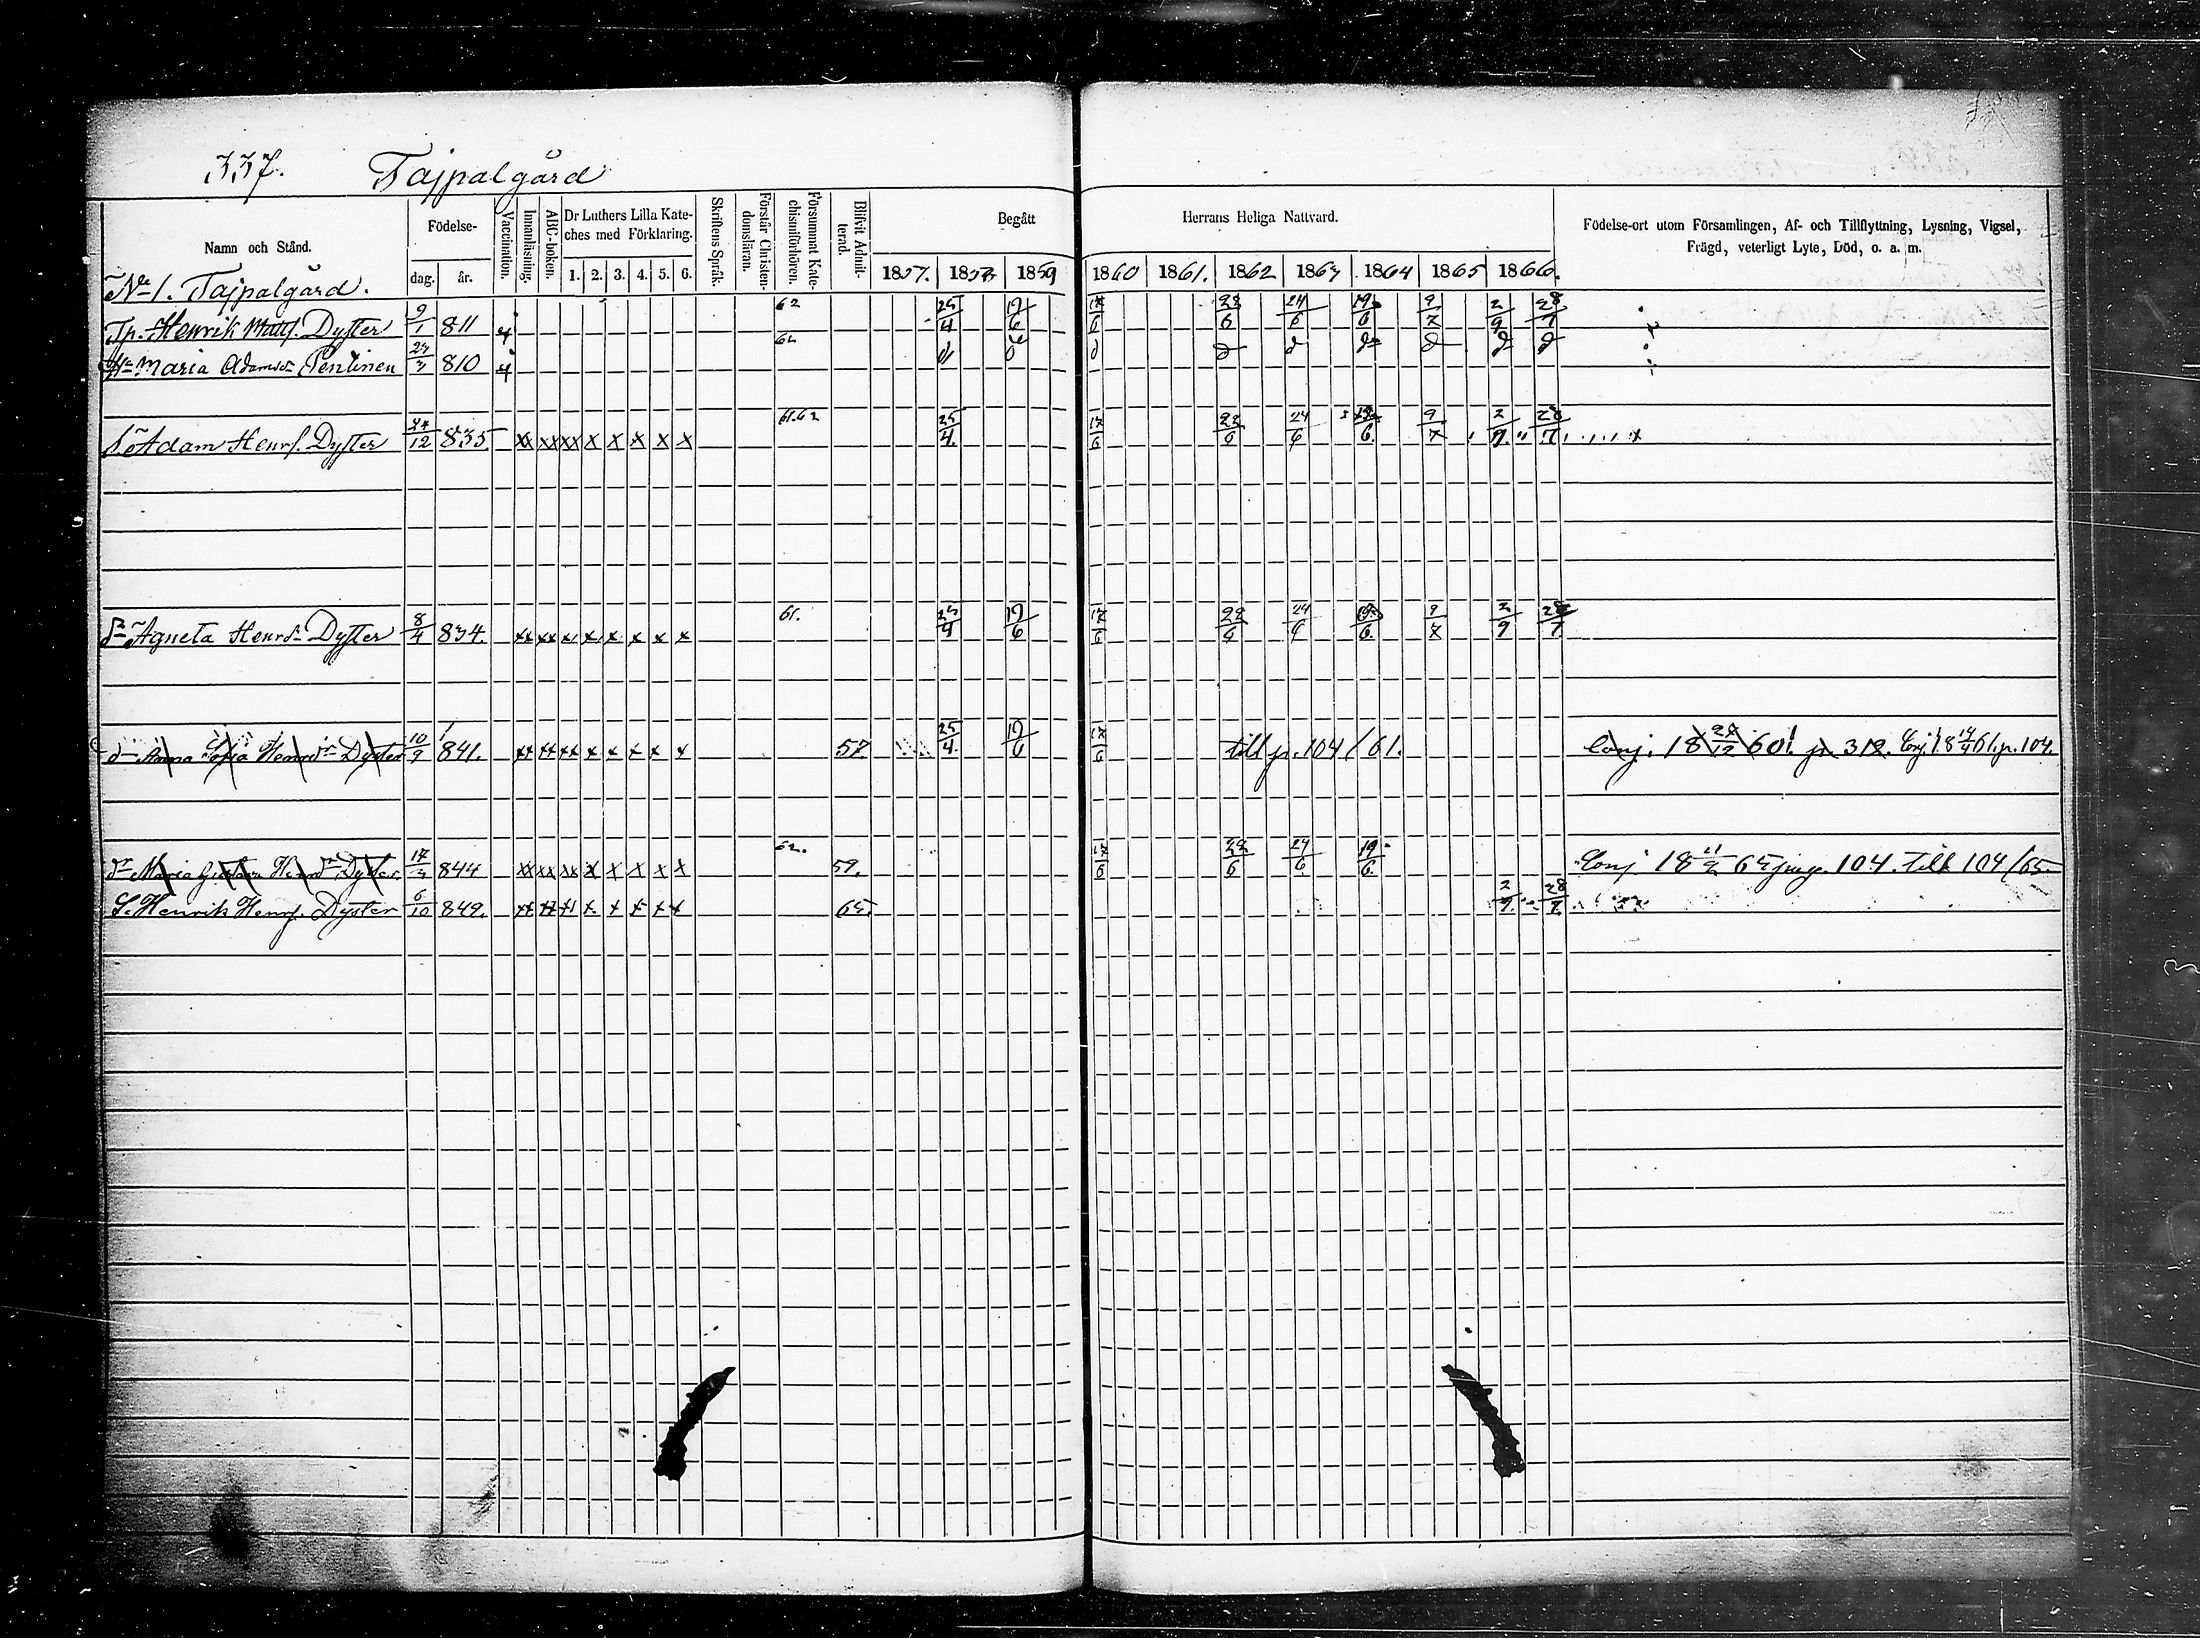 337. Tajpalgård
Namn och Stånd.
Födelse-
dag.
år.
Vaccination.
Innanläsning.
ABC-boken.
Dr Luthers Lilla Kate-
ches med Förklaring.
1. 2. 3. 4. 5. 6.
Skriftens Språk.
Förstår Christen-
domsläran.
Försummat Kate-
chismiförhören.
Blifvit Admit-
terad.
Begått Herrans Heliga Nattvard.
1857. 1858 1859 1860 1861. 1862 1863 1864 1865 1866.
Födelse-ort utom Församlingen, Af- och Tillflyttning, Lysning, Vigsel,
Frägd, veterligt Lyte, Död, o. a. m.
No 1. Tajpalgård.
Tp. Henrik Matts. Dyster 9/1 811 62 25/4 19/6 17/6 22/6 24/6 19/6 9/7 2/9 28/7
Hu Maria Adamsdr Pentinen 23/3 810 62
S. Adam Henrs. Dyster 24/12 835. xx xx xx x x x x x 61.62 25/4 17/6 22/6 24/6 19/6 9/7 2/9 28/7
Dr Agneta Henrsdr Dyster 8/4 834. xx xx x x x x x x 61. 25/4 19/6 17/6 22/6 24/6 19/6 9/7 2/9 28/7
dr Anna Sofia Henrsdr Dyster 10/9 841. xx xx xx x x x x x 57. 25/4 19/6 17/6 till p. 104/61. Conj. 18 26/12 60 p. 312. Conj. 18 14/4 61. p. 104.
dr Maria Henrsdr Dyster 844 xx xx xx x x x x x 62. 59. 17/6 22/6 24/6 19/6 Conj 18 65 104. till 104/65.
S. Henrik Henrs. Dyster 6/10 849. xx xx x x x x x x 65. 2/9 28/7